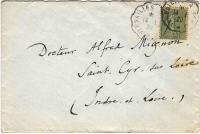 Docteur Alfred Mignon
Saint. Cyr. sur Loire
(Indre. et. Loire.)